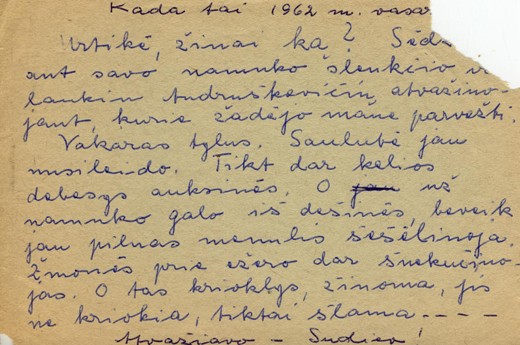 Kada tai 1962 m. vasar
Urtikė, žinai ką? Sėd-
ant savo namuko slenksčio ir
laukiu Andruškevičių atvažiuo-
jant, kurie žadėjo mane parvežti.
Vakaras tylus. Saulutė jau
nusileido. Tikt dar kelios
debesys auksinės. O jau už
namuko galo iš dešinės, beveik
jau pilnas menulis šešėliuoja.
Žmonės prie ežero dar šnekučiuo-
jas. O tas krioklys, žinoma, jis
ne kriokia, tiktai šlama - - - -
Atvažiavo - Sudiev!